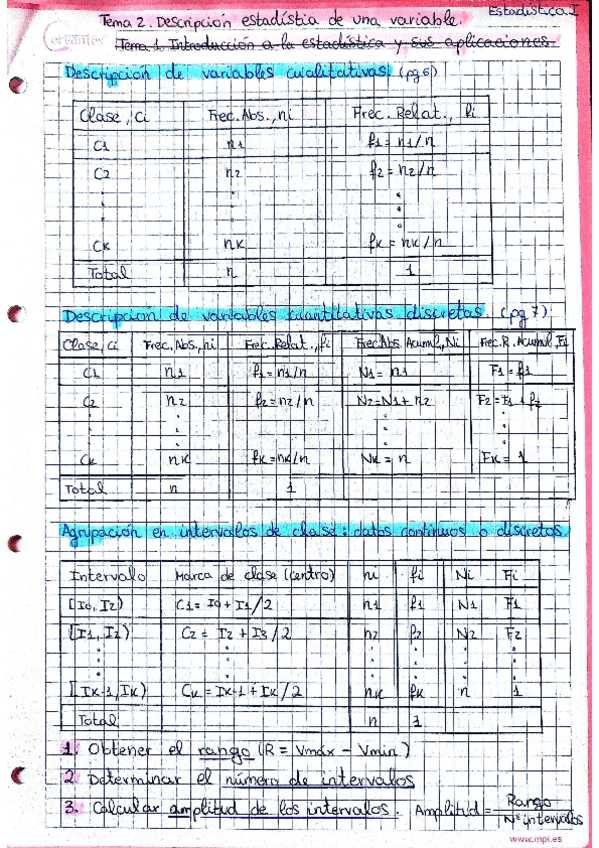 Estadística.I
Tema 2. Descripción estadístia de una variable.
Cervantes
Tema 1. Introducción a la estadística y sus aplicaciones.
Descripción de variables cualitativas. (pg 6)
Clase, Ci Frec. Abs., ni Frec. Relat., fi
C1 n1 f1 = n1/n
C2 n2 f2 = n2/n
Ck nk fk = nk/n
Total n 1
Descripción de variables cuantitativas discretas. (pg 7)
Clase, Ci Frec. Abs., ni Frec. Relat., fi Frec. Abs. Acuml., Ni Frec. R. Acuml. Fi
C1 n1 f1 = n1/n N1 = n1 F1 = f1
C2 n2 f2 = n2/n N2 = N1 + n2 F2 = F1 + f2
Ck nk fk = nk/n Nk = n Fk = 1
Total n 1
Agrupación en intervalos de clase: datos continuos o discretos.
Intervalo Marca de clase (centro) ni fi Ni Fi
[I0, I2) C1 = I0 + I1/2 n1 f1 N1 F1
[I1, I2) C2 = I2 + I3/2 n2 f2 N2 F2
[Ik-1, Ik) Ck = Ik-1 + Ik/2 nk fk n 1
Total n 1
1. Obtener el rango (R = Vmáx - Vmin)
2. Determinar el número de intervalos
3. Calcular amplitud de los intervalos. Amplitud = Rango / Nº intervalos
www.mpi.es